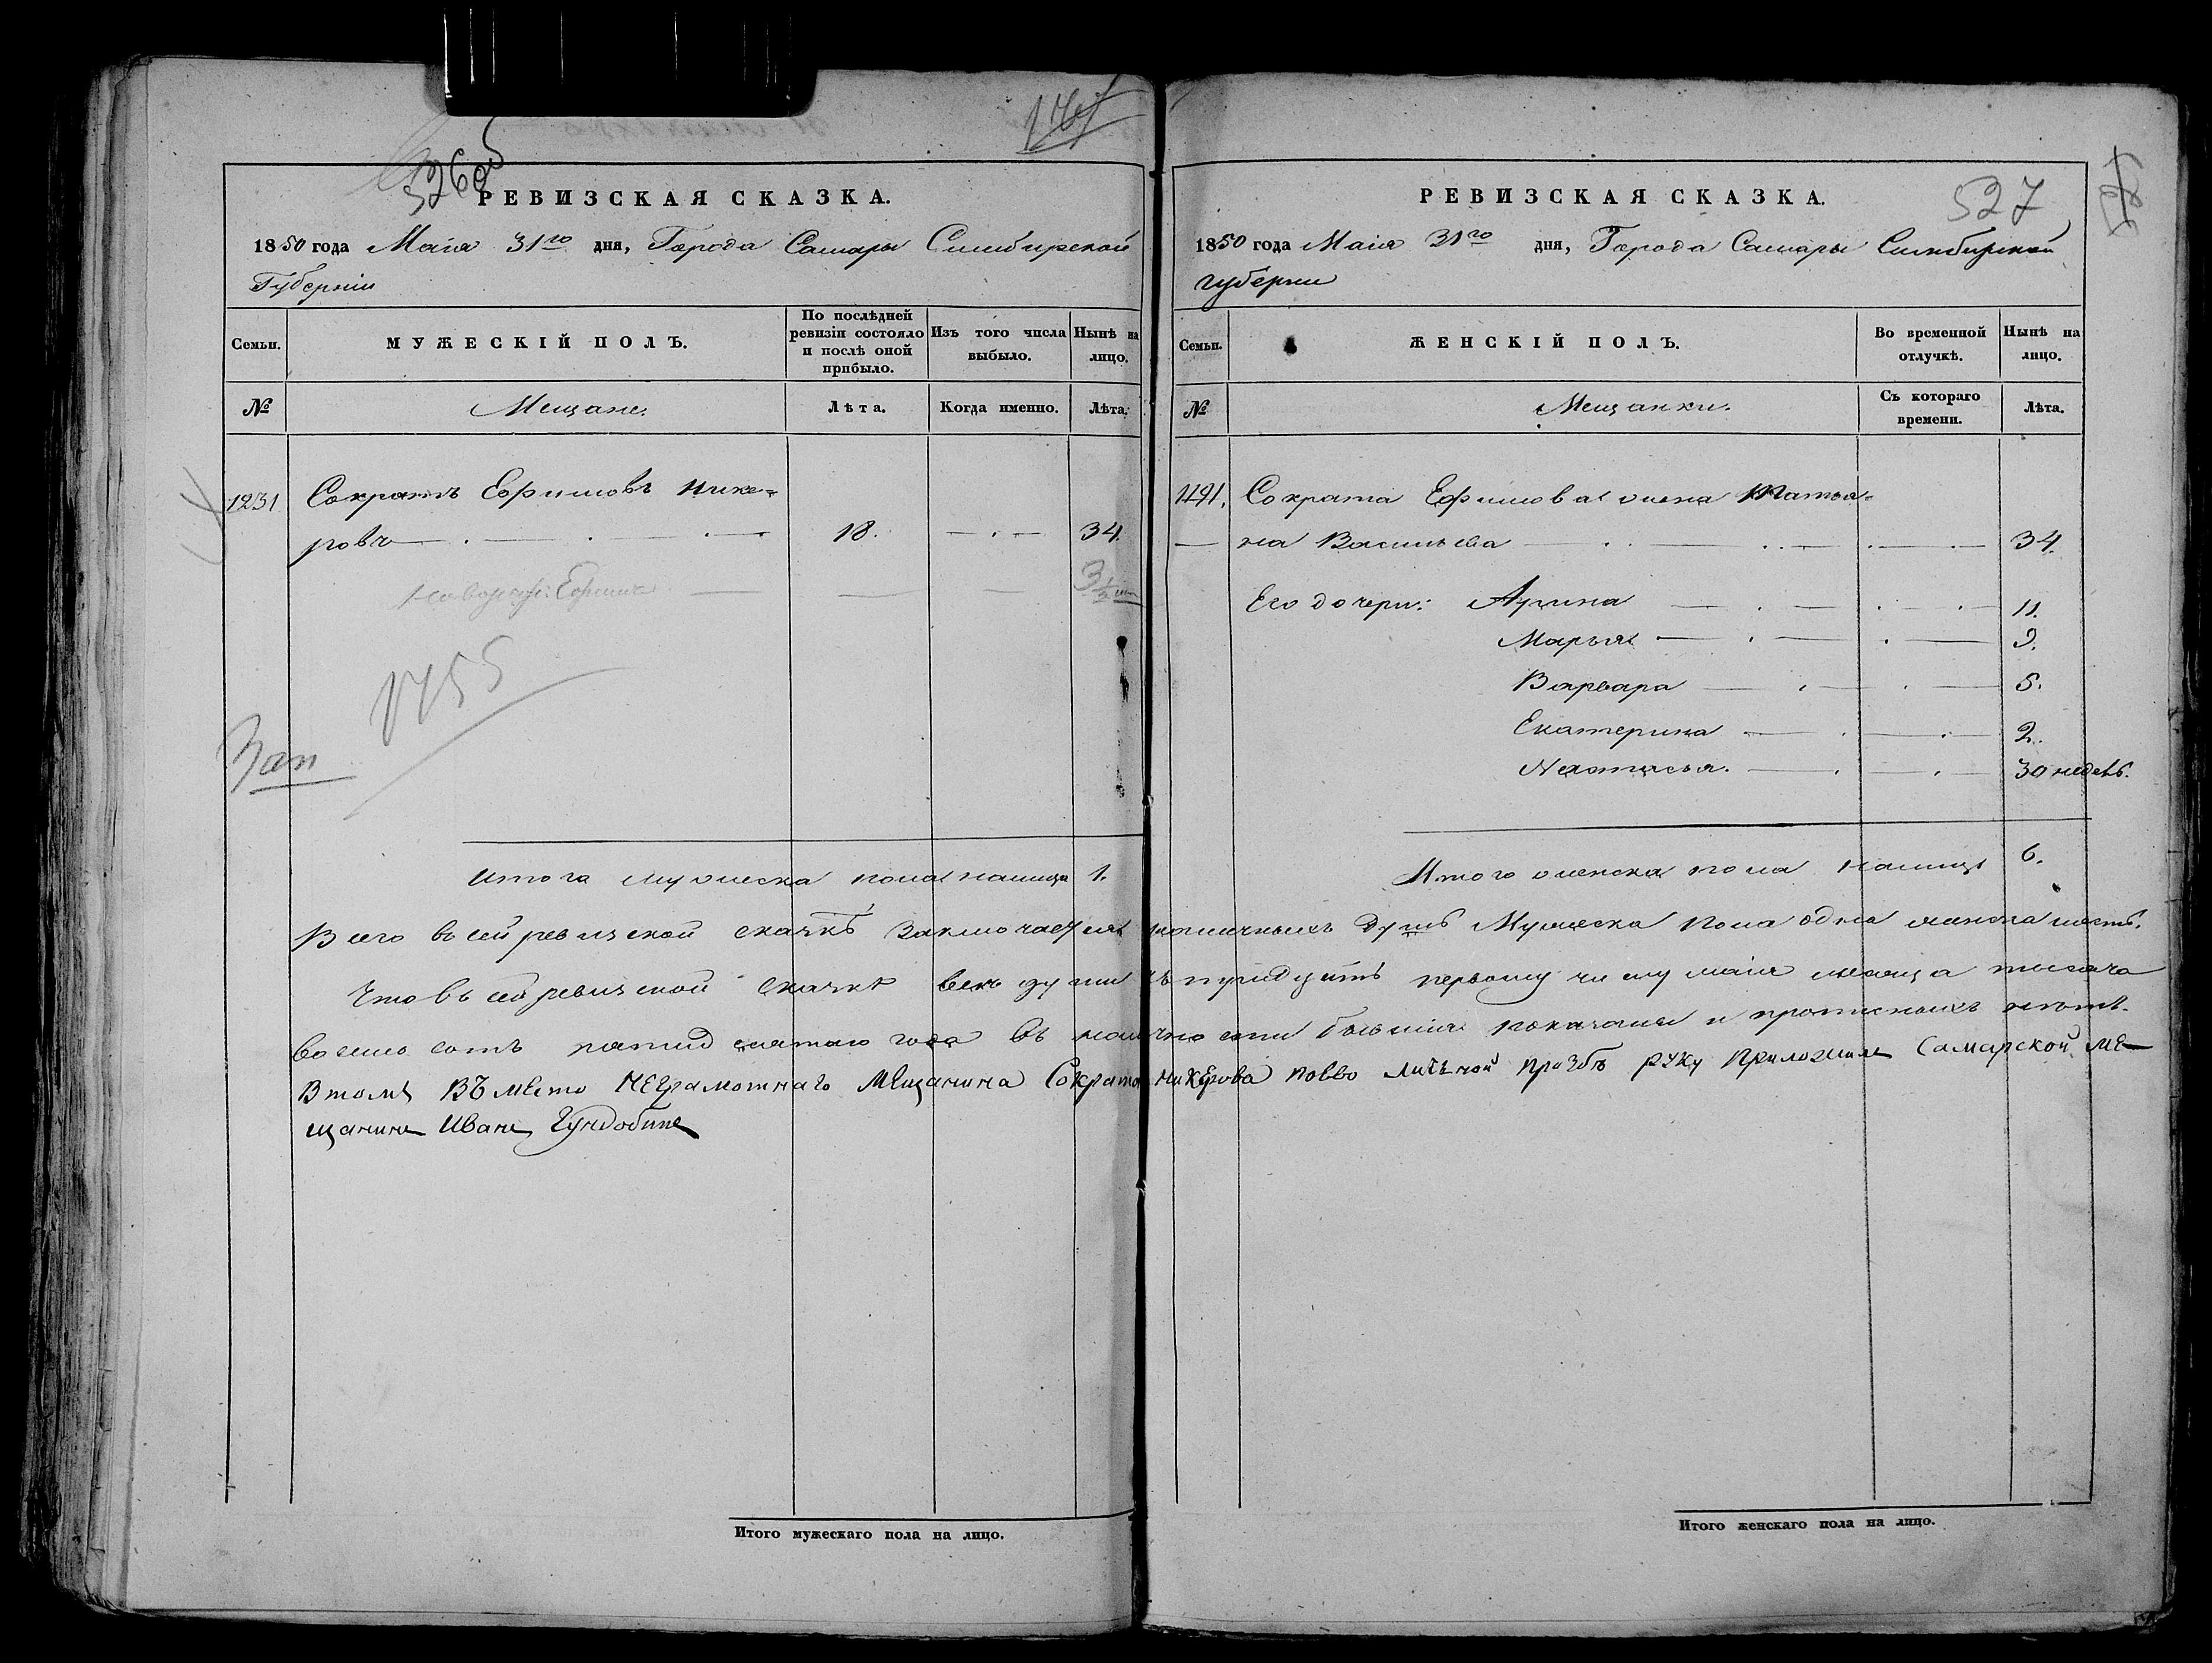 147
526об
РЕВИЗСКАЯ СКАЗКА.
1850 года Маія 31го дня, Города Самары Симбирской
Губерніи
Семьи.
МУЖЕСКІЙ ПОЛЪ.
По послѣдней ревизіи состояло и послѣ оной прибыло.
Изъ того числа выбыло.
Нынѣ на лицо.
№
Мещане.
Лѣта.
Когда именно.
Лѣта.
1231 Сократъ Ефимовъ Нике=
ровъ 18. 34.
Новорож: Ефимъ 3½
1755
Зап
Итого мужеска пола налицо 1.
РЕВИЗСКАЯ СКАЗКА.
527
1850 года Маія 31го дня, Города Самары Симбирской
губерни
Семьи.
ЖЕНСКІЙ ПОЛЪ.
Во временной отлучкѣ.
Нынѣ на лицо.
№
Мещанки.
Съ котораго времени.
Лѣта.
Сократа Ефимова жена Татья=
на Васильева 34.
Его дочери: Арина 11.
Марья 9.
Варвара 5.
Екатерина 2.
Настасья. 30 недель.
Итого женска пола налицо 6.
Всего въ сей ревизской скаскѣ заключается наличныхъ душъ Мужеска пола одна женска шесть.
Что въ сей ревизской скаскѣ все души къ тридцать первому числу маія месяца тысяча
восемь сотъ пятидесятаго года въ налично сти бывшія показаны и прописныхъ нѣтъ.
Втомъ ВЪместо НЕграмотнаго МЕщанина Сократа никЕрова повво личьной прозбѣ руку приложилъ Самарской МЕ-
щанинъ Иванъ Гундобинъ
Итого мужескаго пола на лицо.
Итого женскаго пола на лицо.